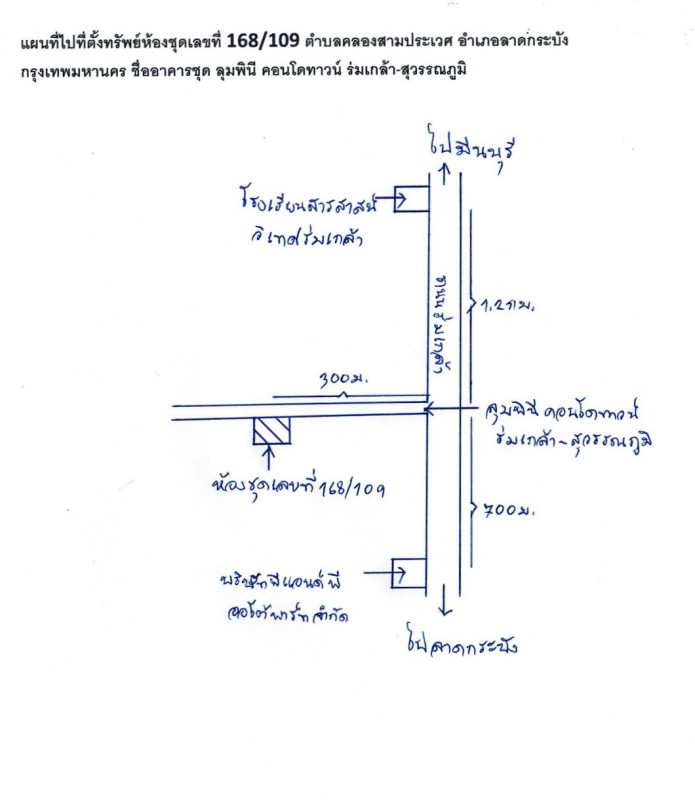 แผนที่ไปที่ตั้งทรัพย์ห้องชุดเลขที่ 168/109 ตำบลคลองสามประเวศ อำเภอลาดกระบัง
กรุงเทพมหานคร ชื่ออาคารชุด ลุมพินี คอนโดทาวน์ ร่มเกล้า-สุวรรณภูมิ
ไปมีนบุรี
โรงเรียนสารสาสน์
วิเทศร่มเกล้า
ถนนร่มเกล้า
1.2 กม.
300 ม.
ลุมพินี คอนโดทาวน์
ร่มเกล้า-สุวรรณภูมิ
ห้องชุดเลขที่ 168/109
700 ม.
บริษัทพีแอนด์พี
ออโต้พาร์ท จำกัด
ไปลาดกระบัง